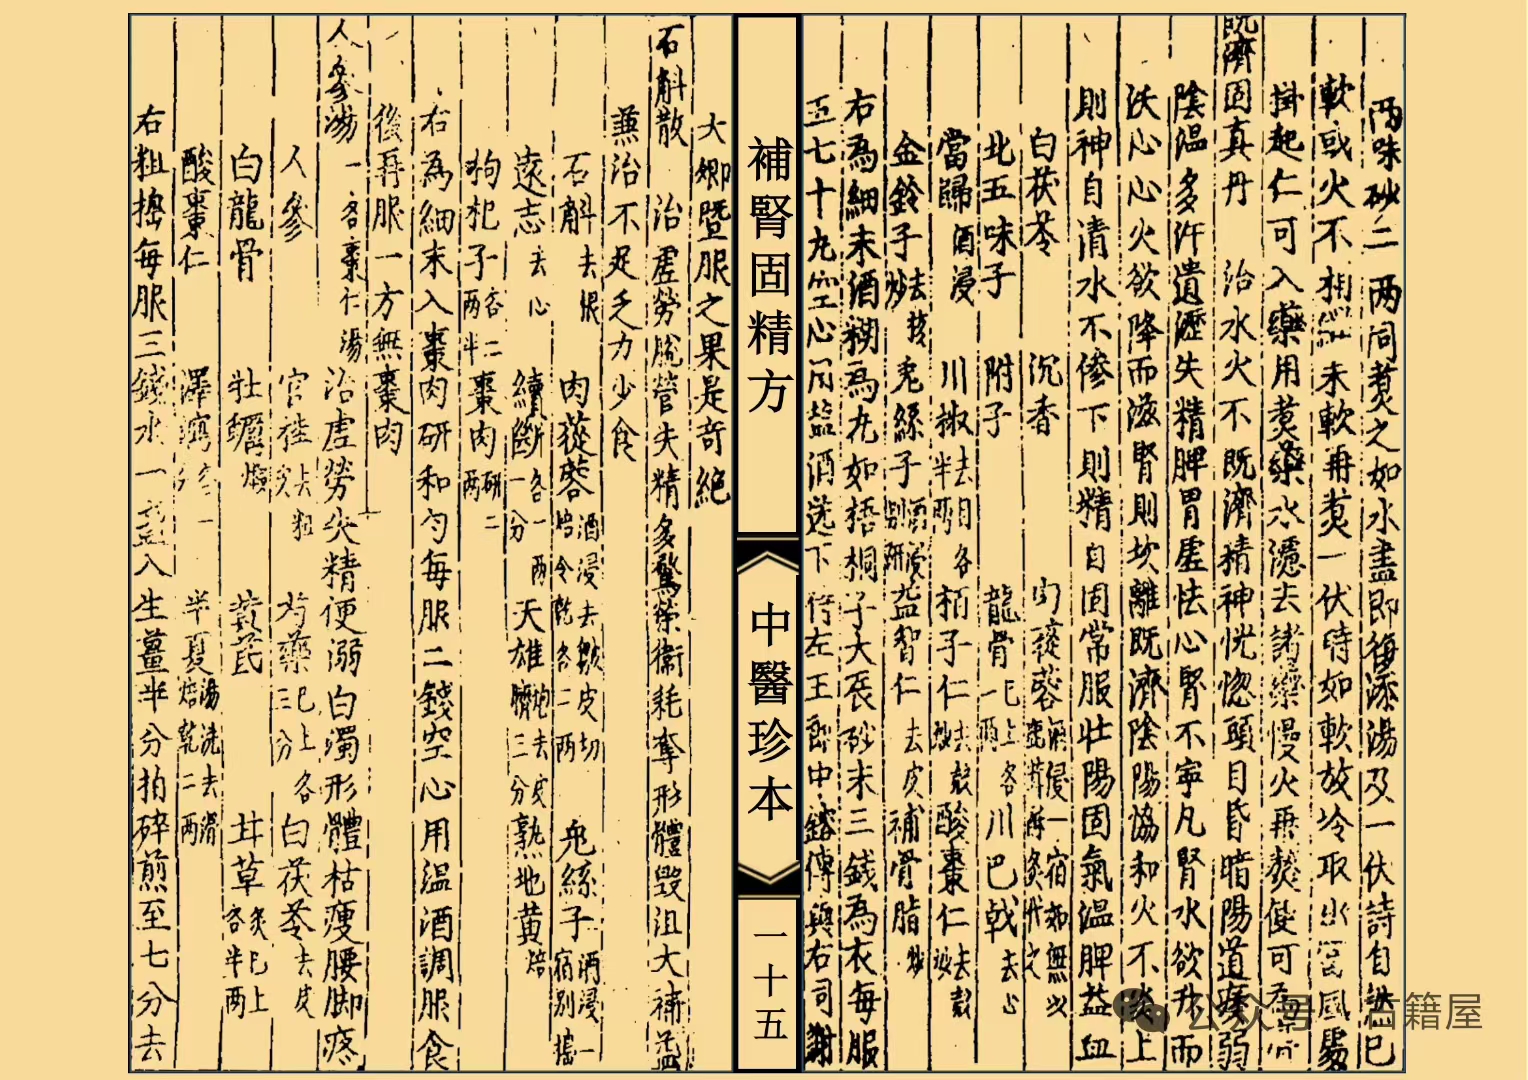 両味砂二兩同煑之如水盡即復添湯及一伏時自然已
軟或火不相未軟再煑一伏時如軟放冷取出風處
掛起仁可入藥用煑藥水濾去諸藥慢火再熬使可
既濟固真丹 治水火不既濟精神恍惚頭目昏暗陽道痿弱
陰溫多汗遺瀝失精脾胃虛怯心腎不寧凡腎水欲升而
沃心心火欲降而滋腎則坎離既濟陰陽協和火不炎上
則神自清水不滲下則精自固常服壯陽固氣溫脾益血
白茯苓 沉香 肉蓯蓉酒浸一宿如無以鹿茸酥炙代之
北五味子 附子 龍骨已上各一兩 川巴戟去心
當歸酒浸 川椒去目各半兩 柏子仁去殼炒 酸棗仁去殼炒
金鈴子去核炒 兎絲子酒浸別研 益智仁去皮 補骨脂炒
右為細末酒糊為丸如梧桐子大辰砂末三錢為衣每服
五七十丸空心溫盐酒送下侍左王郎中鎔傳與右司謝
補腎固精方
中醫珍本
一十五
大卿暨服之果是奇絕
石斛散 治虛勞脫營失精多驚榮衛耗奪形體毀沮大補益
兼治不足乏力少食
石斛去根 肉蓯蓉酒浸去皺皮切焙令乾各二兩 兎絲子酒浸一宿別搗
遠志去心 續斷各一兩一分 天雄炮去皮臍三分 熟地黄焙
狗杞子各二兩半 棗肉研二兩
右為細末入棗肉研和勻每服二錢空心用溫酒調服食
後再服一方無棗肉
人參湯一名棗仁湯 治虛勞失精便溺白濁形體枯瘦腰脚疼
人參 官桂去粗皮 芍藥已上各三分 白茯苓去皮
白龍骨 牡蠣煅 黃芪 甘草炙已上各半兩
酸棗仁 澤瀉各一 半夏湯洗去滑焙乾二兩
右粗搗每服三錢水一盞入生薑半分拍碎煎至七分去
公众号 古籍屋